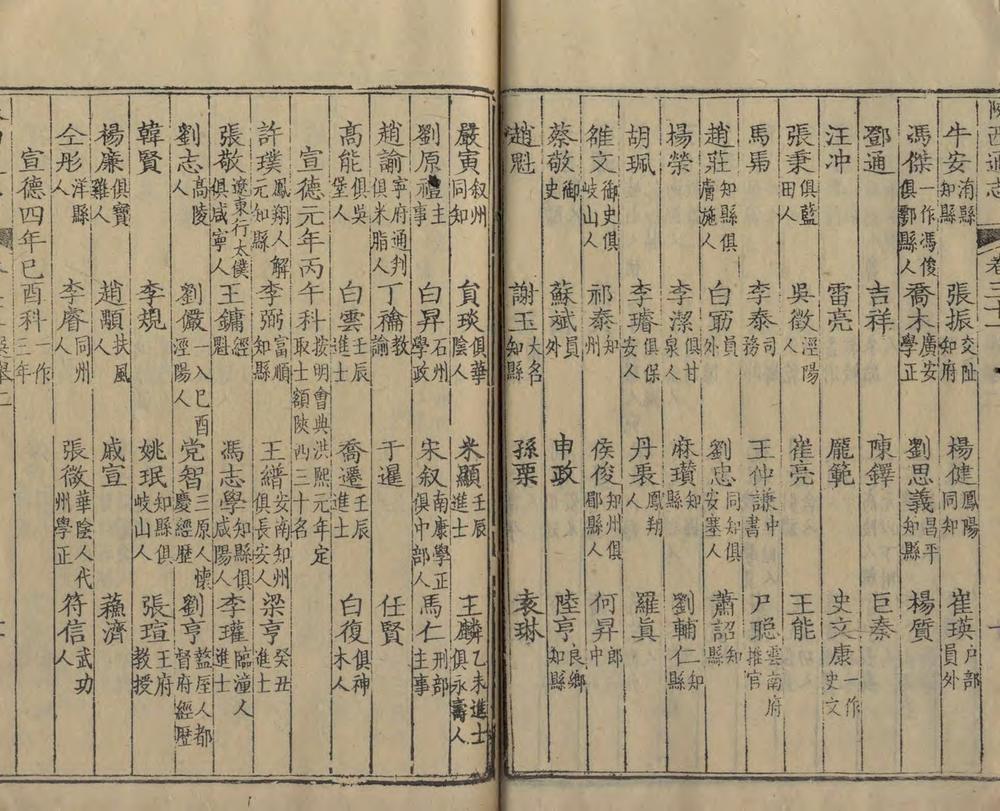 陝西通志 卷三十一
牛安 洧縣知縣 張振 交阯知府 楊健 鳳陽同知 崔瑛 户部員外
馮傑 一作馮俊俱郭縣人 喬木 廣安學正 劉思義 昌平知縣 楊質
鄧通 吉祥 陳鐸 巨泰
汪冲 雷亮 龐範 史文康 一作史文
張秉 俱藍田人 吳徵 涇陽人 崔亮 王能
馬馬 李泰 司務 王仲謙 中書 尸聡 雲南府推官
趙莊 知縣俱膚施人 白勛 員外 劉忠 同知俱安塞人 蕭詔 知縣
楊榮 李潔 俱甘泉人 麻瓚 知縣 劉輔仁 知縣
胡珮 李璿 俱保安人 丹裴 鳳翔人 羅真
雒文 御史俱岐山人 祁泰 知州 侯俊 知州俱郿縣人 何昇 郎中
蔡敬 御史 蘇斌 員外 申政 陸亨 良鄉知縣
趙魁 謝玉 大名知縣 孫栗 袁琳
嚴寅 叙州同知 負琰 俱華陰人 米顯 壬辰進士 王麟 乙未進士俱永壽人
劉原禮 主事 白昇 石州學政 宋叙 南康學正俱中部人 馬仁 刑部主事
趙諭 寧府通判俱米脂人 丁穐 教諭 于暹 任賢
高能 俱吳堡人 白雲 壬辰進士 喬遷 壬辰進士 白復 俱神木人
宣德元年丙午科 按明會典洪熙元年定取士額陝西三十名
許璞 鳳翔人解元知縣 李弼 富順知縣 王縉 安南知州俱長安人 梁亨 癸丑進士
張敬 遼東行太僕俱咸寧人 王鏞 經魁 馮志學 知縣俱咸陽人 李瓘 臨潼人進士
劉志 高陵人 劉儼 一入己酉涇陽人 党智 三原人懷慶經歷 劉亨 盩厔人都督府經歷
韓賢 李規 姚珉 知縣俱岐山人 張瑄 王府教授
楊廉 俱寶雞人 趙顒 扶風 戚宣 蘓濟
仝彤 洋縣人 李睿 同州人 張徵 華陰人代州學正 符信 武功人
宣德四年己酉科 一作三年